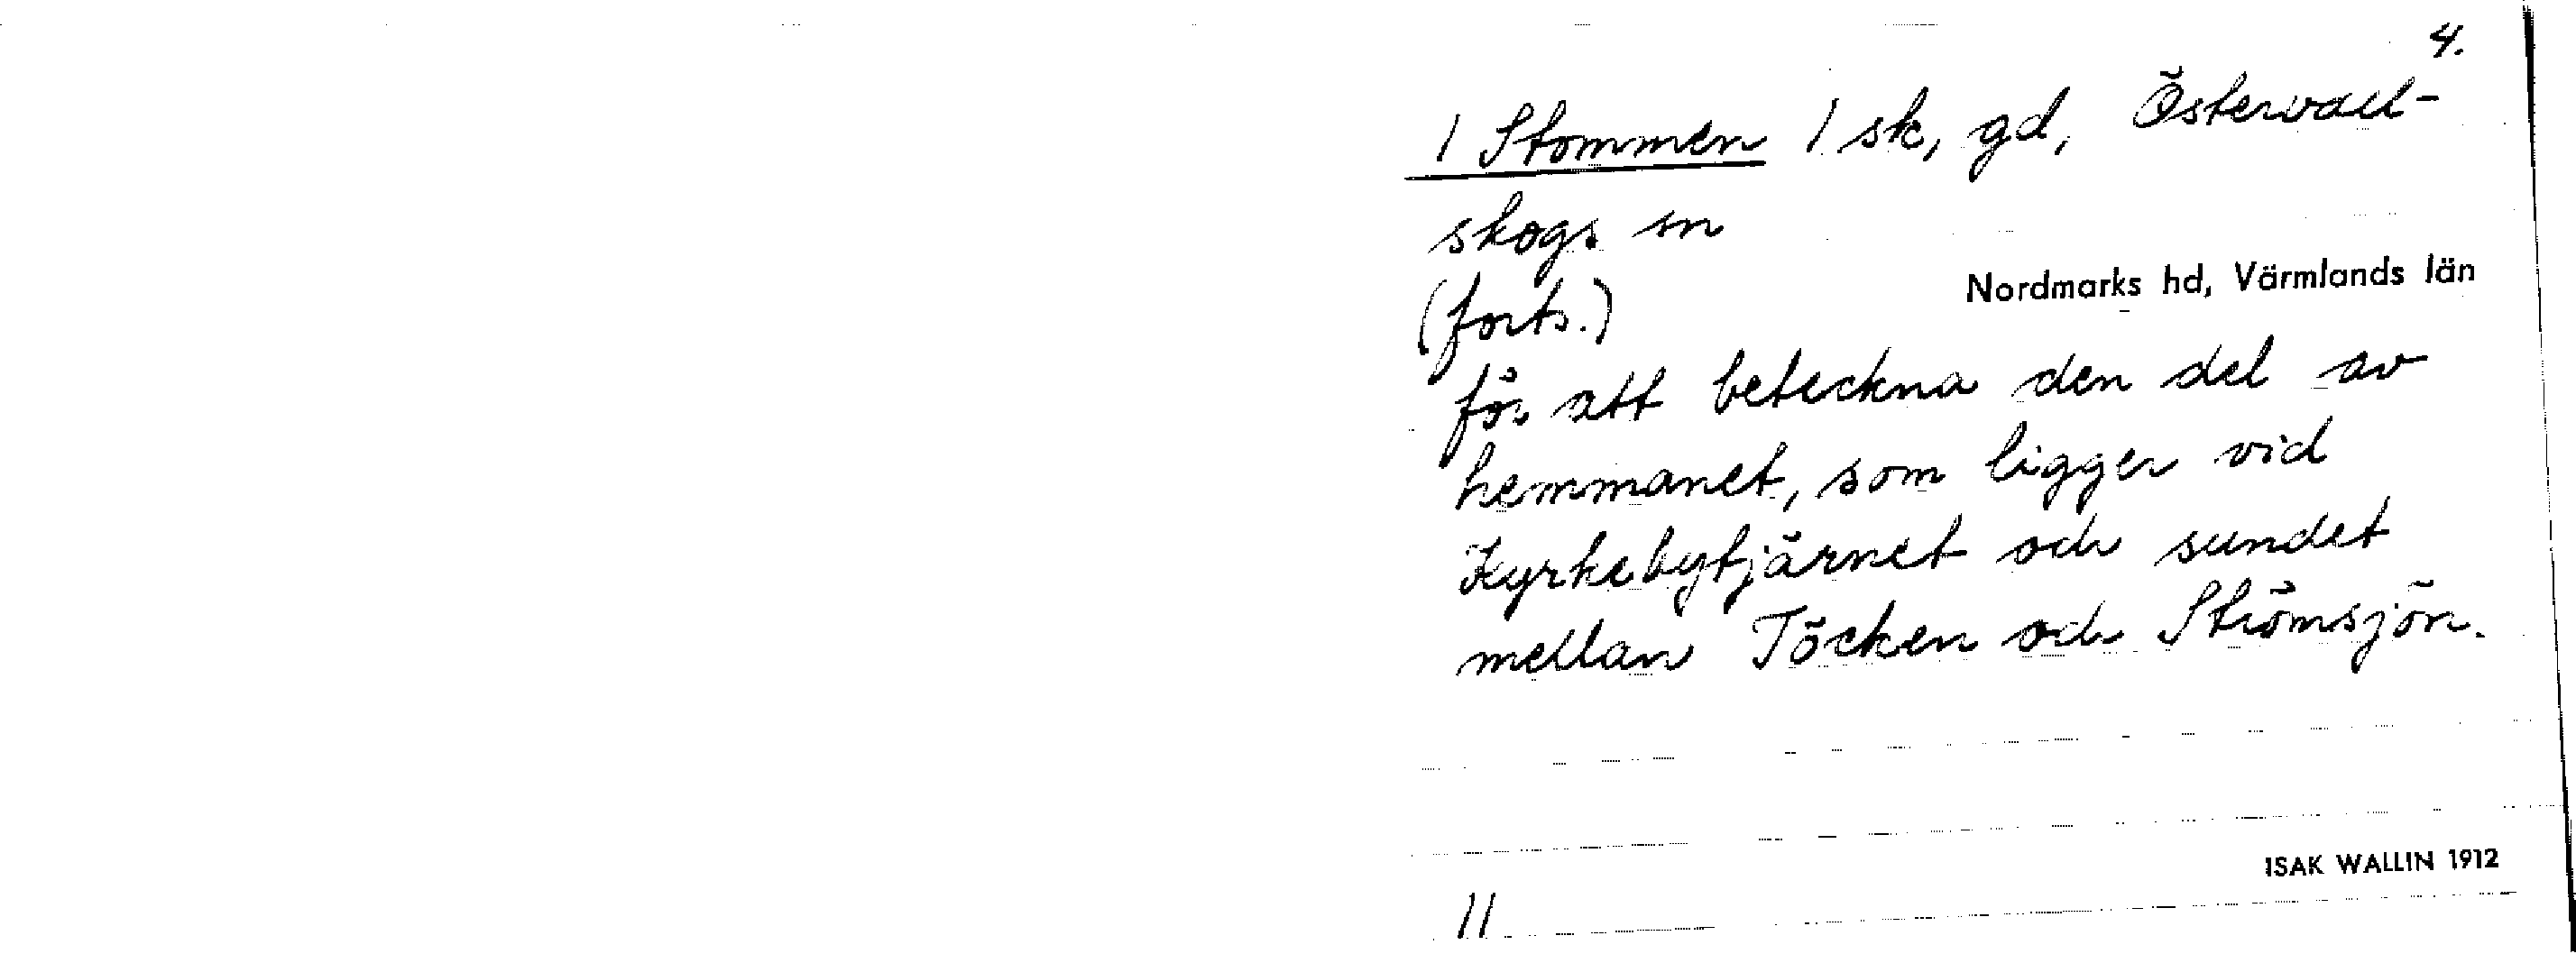 4.
1 Stommen 1 sk, gd, Östervall-
skogs sn
(forts.)
Nordmarks hd, Värmlands län
för att beteckna den del av
hemmanet, som ligger vid
Kyrkebytjärnet och sundet
mellan Töcken och Strömsjön.
ISAK WALLIN 1912
11